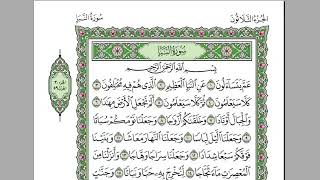 سُورَةُ النَّبَإِ
الجُزْءُ الثَّلَاثُونَ
سُورَةُ النَّبَإِ
بِسْمِ اللَّهِ الرَّحْمَٰنِ الرَّحِيمِ
عَمَّ يَتَسَاءَلُونَ ۝ عَنِ النَّبَإِ الْعَظِيمِ ۝ الَّذِي هُمْ فِيهِ مُخْتَلِفُونَ ۝
كَلَّا سَيَعْلَمُونَ ۝ ثُمَّ كَلَّا سَيَعْلَمُونَ ۝ أَلَمْ نَجْعَلِ الْأَرْضَ مِهَادًا ۝
وَالْجِبَالَ أَوْتَادًا ۝ وَخَلَقْنَاكُمْ أَزْوَاجًا ۝ وَجَعَلْنَا نَوْمَكُمْ سُبَاتًا ۝
وَجَعَلْنَا اللَّيْلَ لِبَاسًا ۝ وَجَعَلْنَا النَّهَارَ مَعَاشًا ۝ وَبَنَيْنَا
فَوْقَكُمْ سَبْعًا شِدَادًا ۝ وَجَعَلْنَا سِرَاجًا وَهَّاجًا ۝ وَأَنزَلْنَا مِنَ
الْمُعْصِرَاتِ مَاءً ثَجَّاجًا ۝ لِّنُخْرِجَ بِهِ حَبًّا وَنَبَاتًا ۝